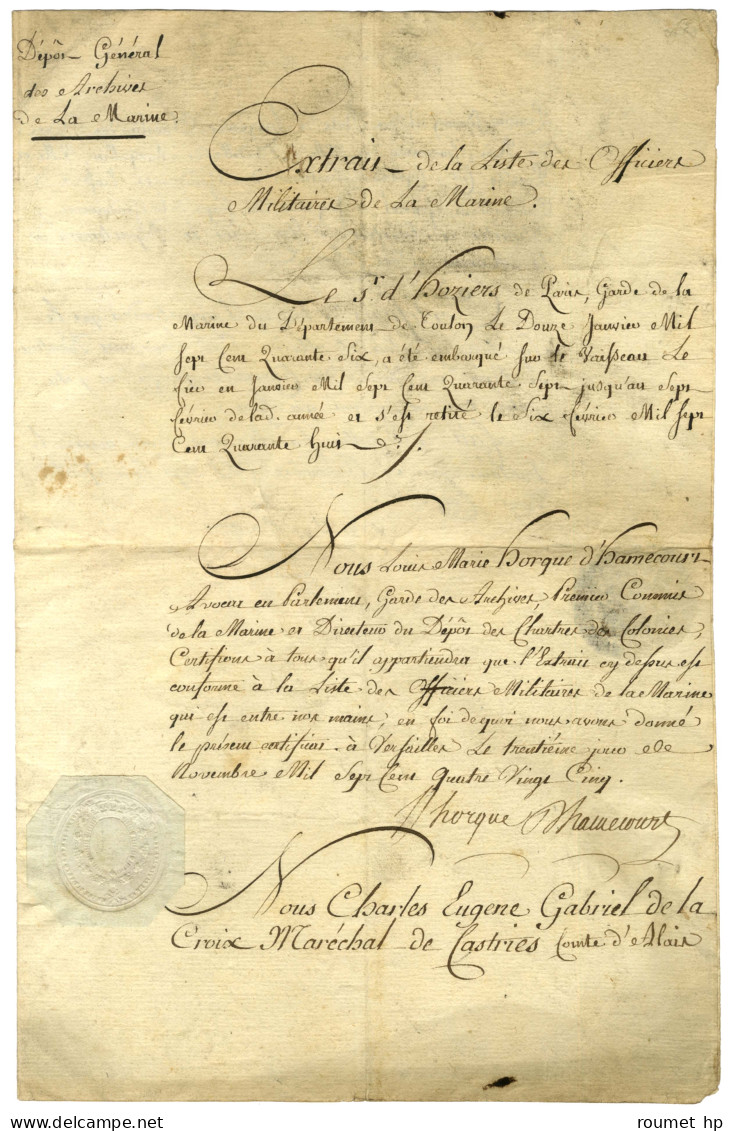 Dépôt Général
des Archives
de La Marine.
Extrait de la Liste des Officiers
Militaires de La Marine.
Le Sr. d'hoziers de Paris, Garde de la
Marine du Département de Toulon Le Douze Janvier Mil
Sept Cent Quarante Six, a été embarqué sur le Vaisseau Le
fier en Janvier Mil Sept Cent Quarante Sept jusqu'au Sept
février de lad. année et s'est retiré le Six février Mil Sept
Cent Quarante huit
Nous Louis Marie horque d'hamecourt
Avocat en Parlement, Garde des Archives, Premier Commis
de la Marine et Directeur du Dépôt des Chartres des Colonies,
Certifions à tous qu'il appartiendra que l'Extrait cy dessus est
conforme à la Liste des Officiers Militaires de la Marine
qui est entre nos mains, en foi de quoi nous avons donné
le présent certificat. à Versailles Le trentième jour de
Novembre Mil Sept Cent Quatre Vingt Cinq.
horque Dhamecourt
Nous Charles Eugene Gabriel de la
Croix Maréchal de Castries Comte d'Alais
roumet hp